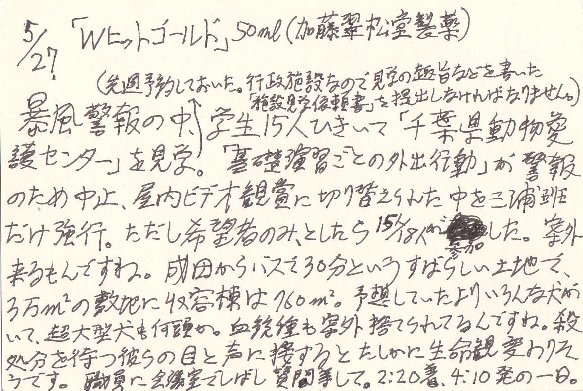 5/27 「Wヒットゴールド」50ml(加藤翠松堂製薬)
(先週予約しておいた。行政施設なので見学の趣旨などを書いた
「施設見学依頼書」を提出しなければなりません。)
暴風警報の中、学生15人ひきいて「千葉県動物愛
護センター」を見学。「基礎演習ごとの外出行動」が警報
のため中止、屋内ビデオ観賞に切り替えられた中を三浦班
だけ強行。ただし希望者のみ、としたら15/18人が参加した。案外
来るもんですね。成田からバスで30分というすばらしい土地で、
3万m²の敷地に収容棟は760m²。予想していたよりいろんな犬が
いて、超大型犬も何頭か。血統種も案外捨てられてるんですね。殺
処分を待つ彼らの目と声に接するとたしかに生命観変わりそ
うです。職員に会議室でしばし質問等して。2:20着、4:10発の一日。